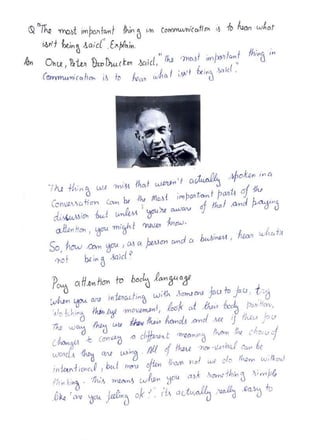 Q "The most important thing in communication is to hear what
isn't being said". Explain.
Ans Once, Peter Drucker said, "The most important thing in
Communication is to hear what isn't being said."
"The thing we miss that weren't actually spoken in a
Conversation can be the most important parts of the
discussion but unless you're aware of that and paying
attention, you might never know.
So, how can you, as a person and a business, hear whats
not being said?
Pay attention to body language
When you are interacting with someone face to face, try
watching their eye movement, look at their body position,
The way they use their hands and see if their face
changes to convey a different meaning from the choice of
words they are using. All of these non-verbal can be
intentional, but more often than not we do them without
thinking. This means when you ask something simple
like "are you feeling ok?", its actually really easy to